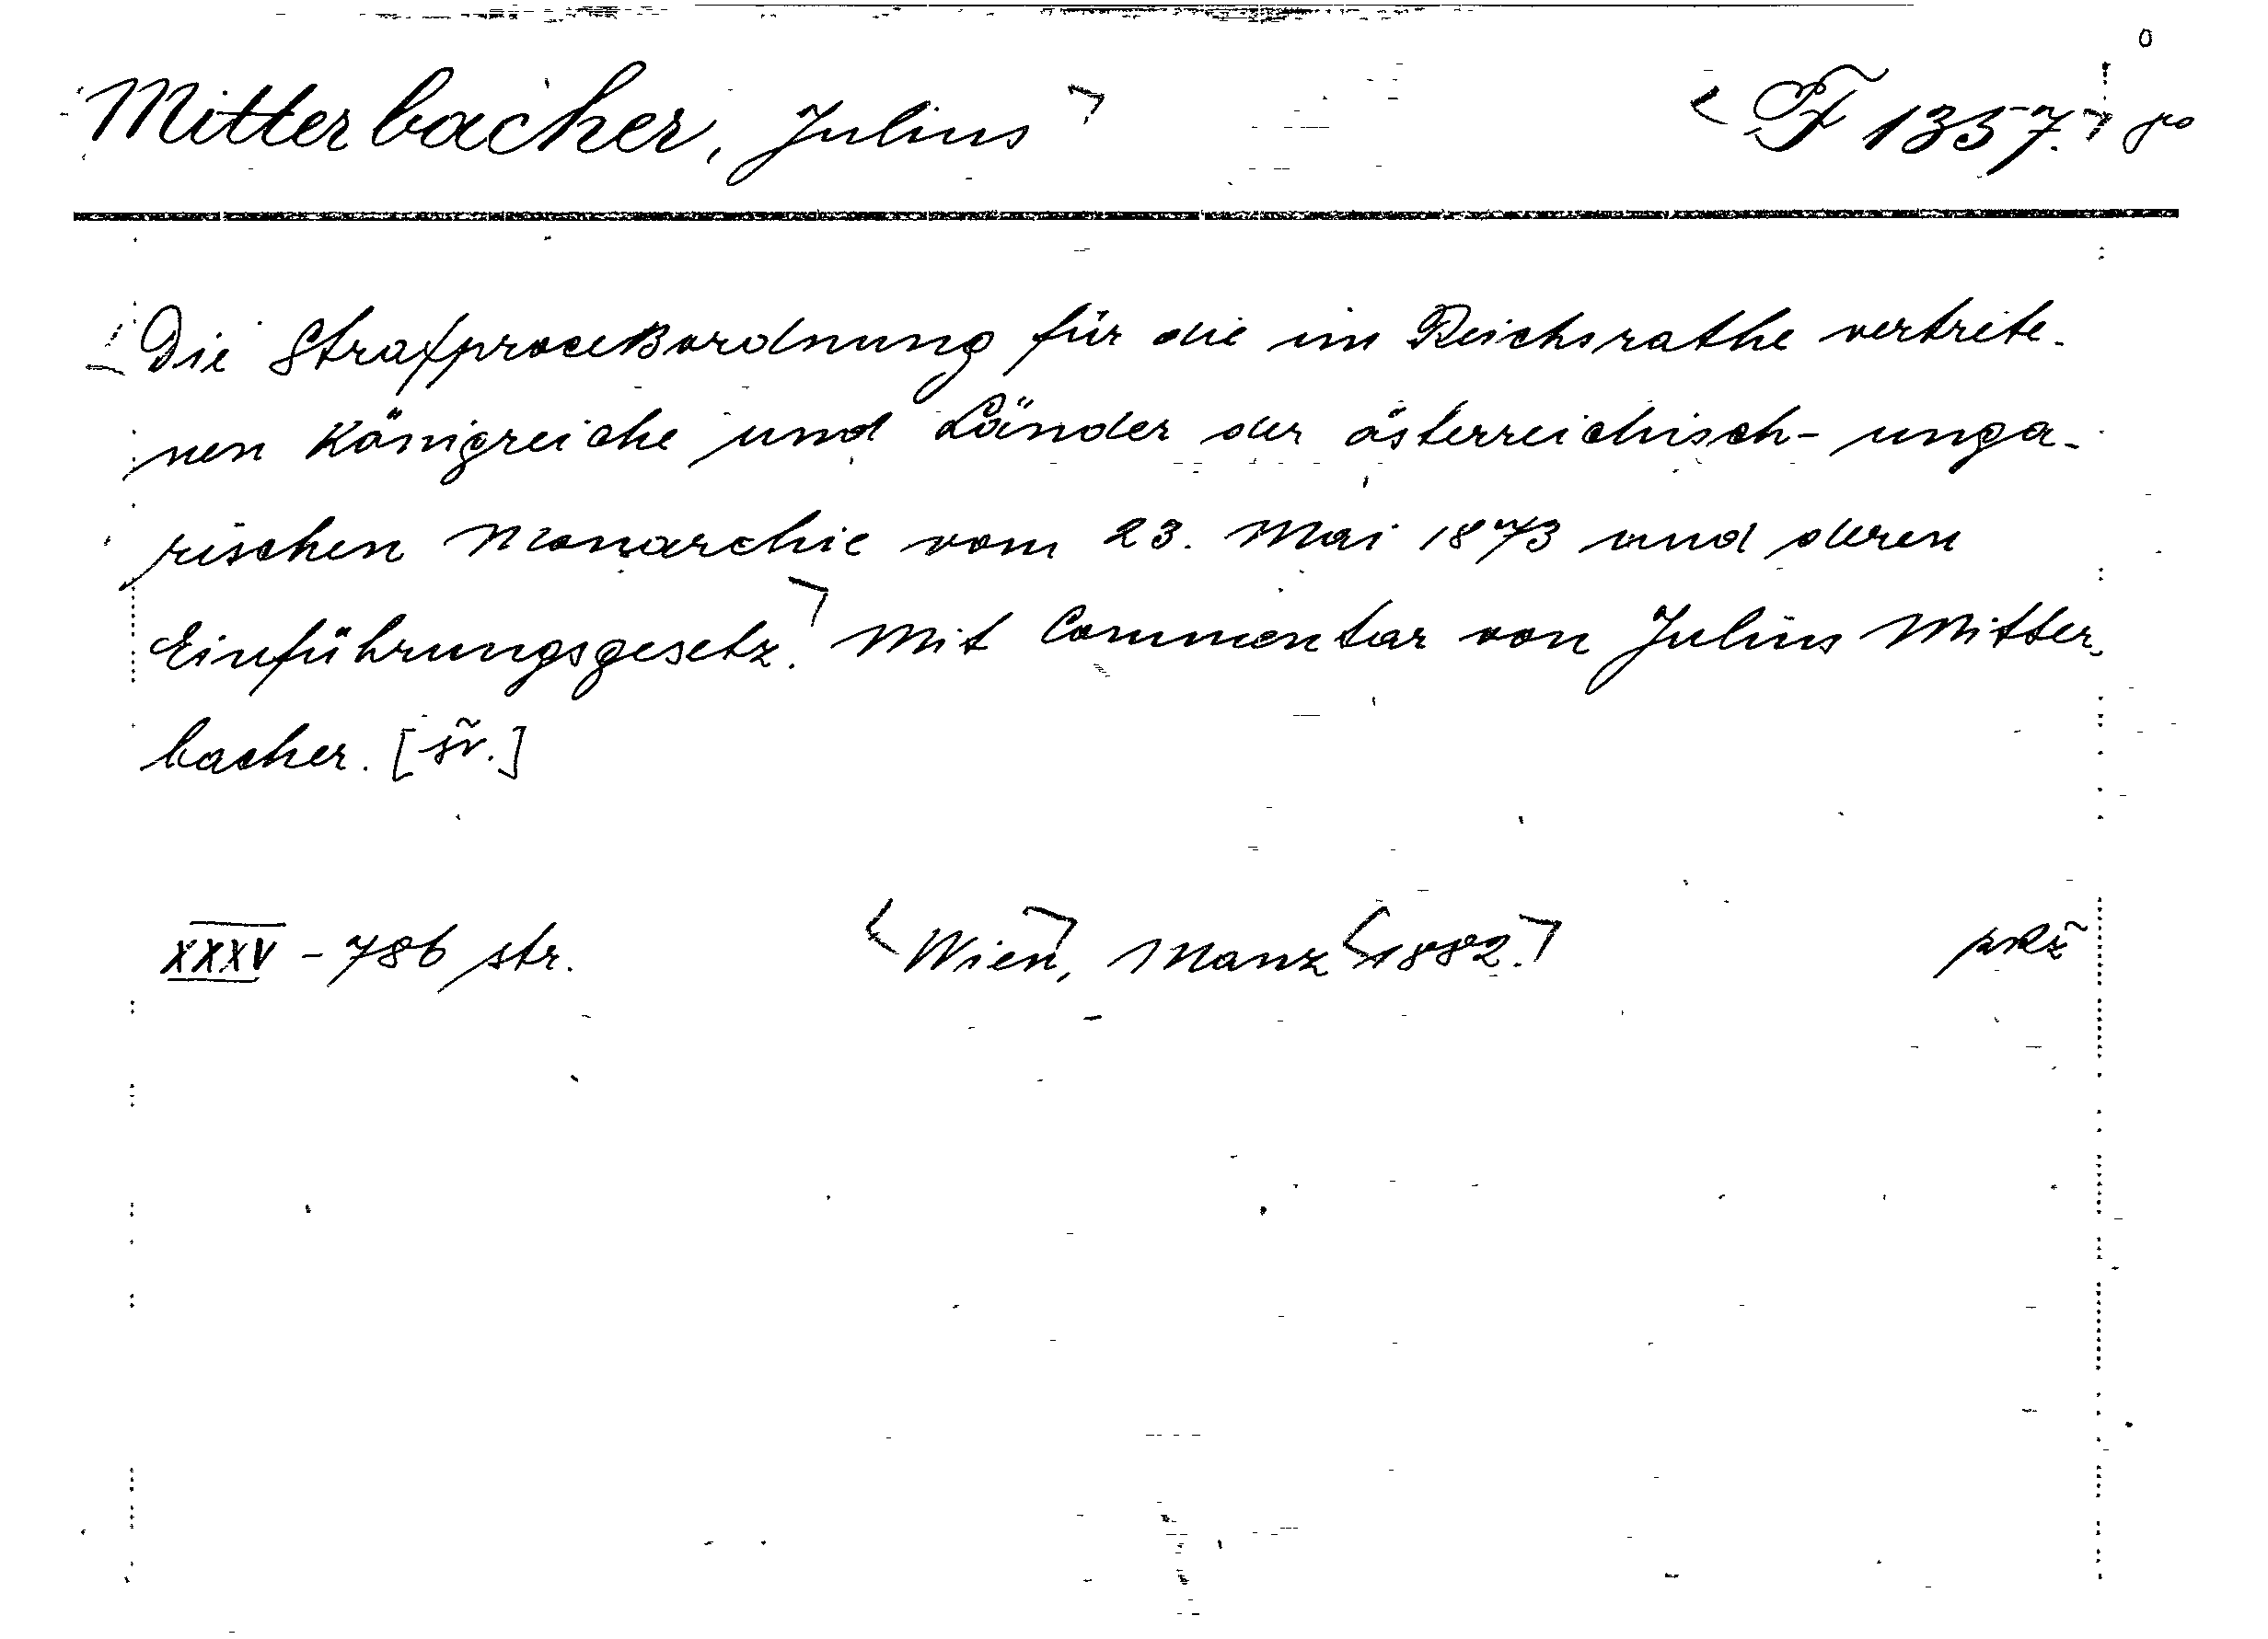 Mitterbacher, Julius F 1357.
Die Strafproceßordnung für die im Reichsrathe vertrete-
nen Königreiche und Länder der österreichisch-unga-
rischen Monarchie vom 23. Mai 1873 und deren
Einführungsgesetz. Mit Commentar von Julius Mitter-
bacher.
XXXV - 786 str. Wien, Manz 1882.